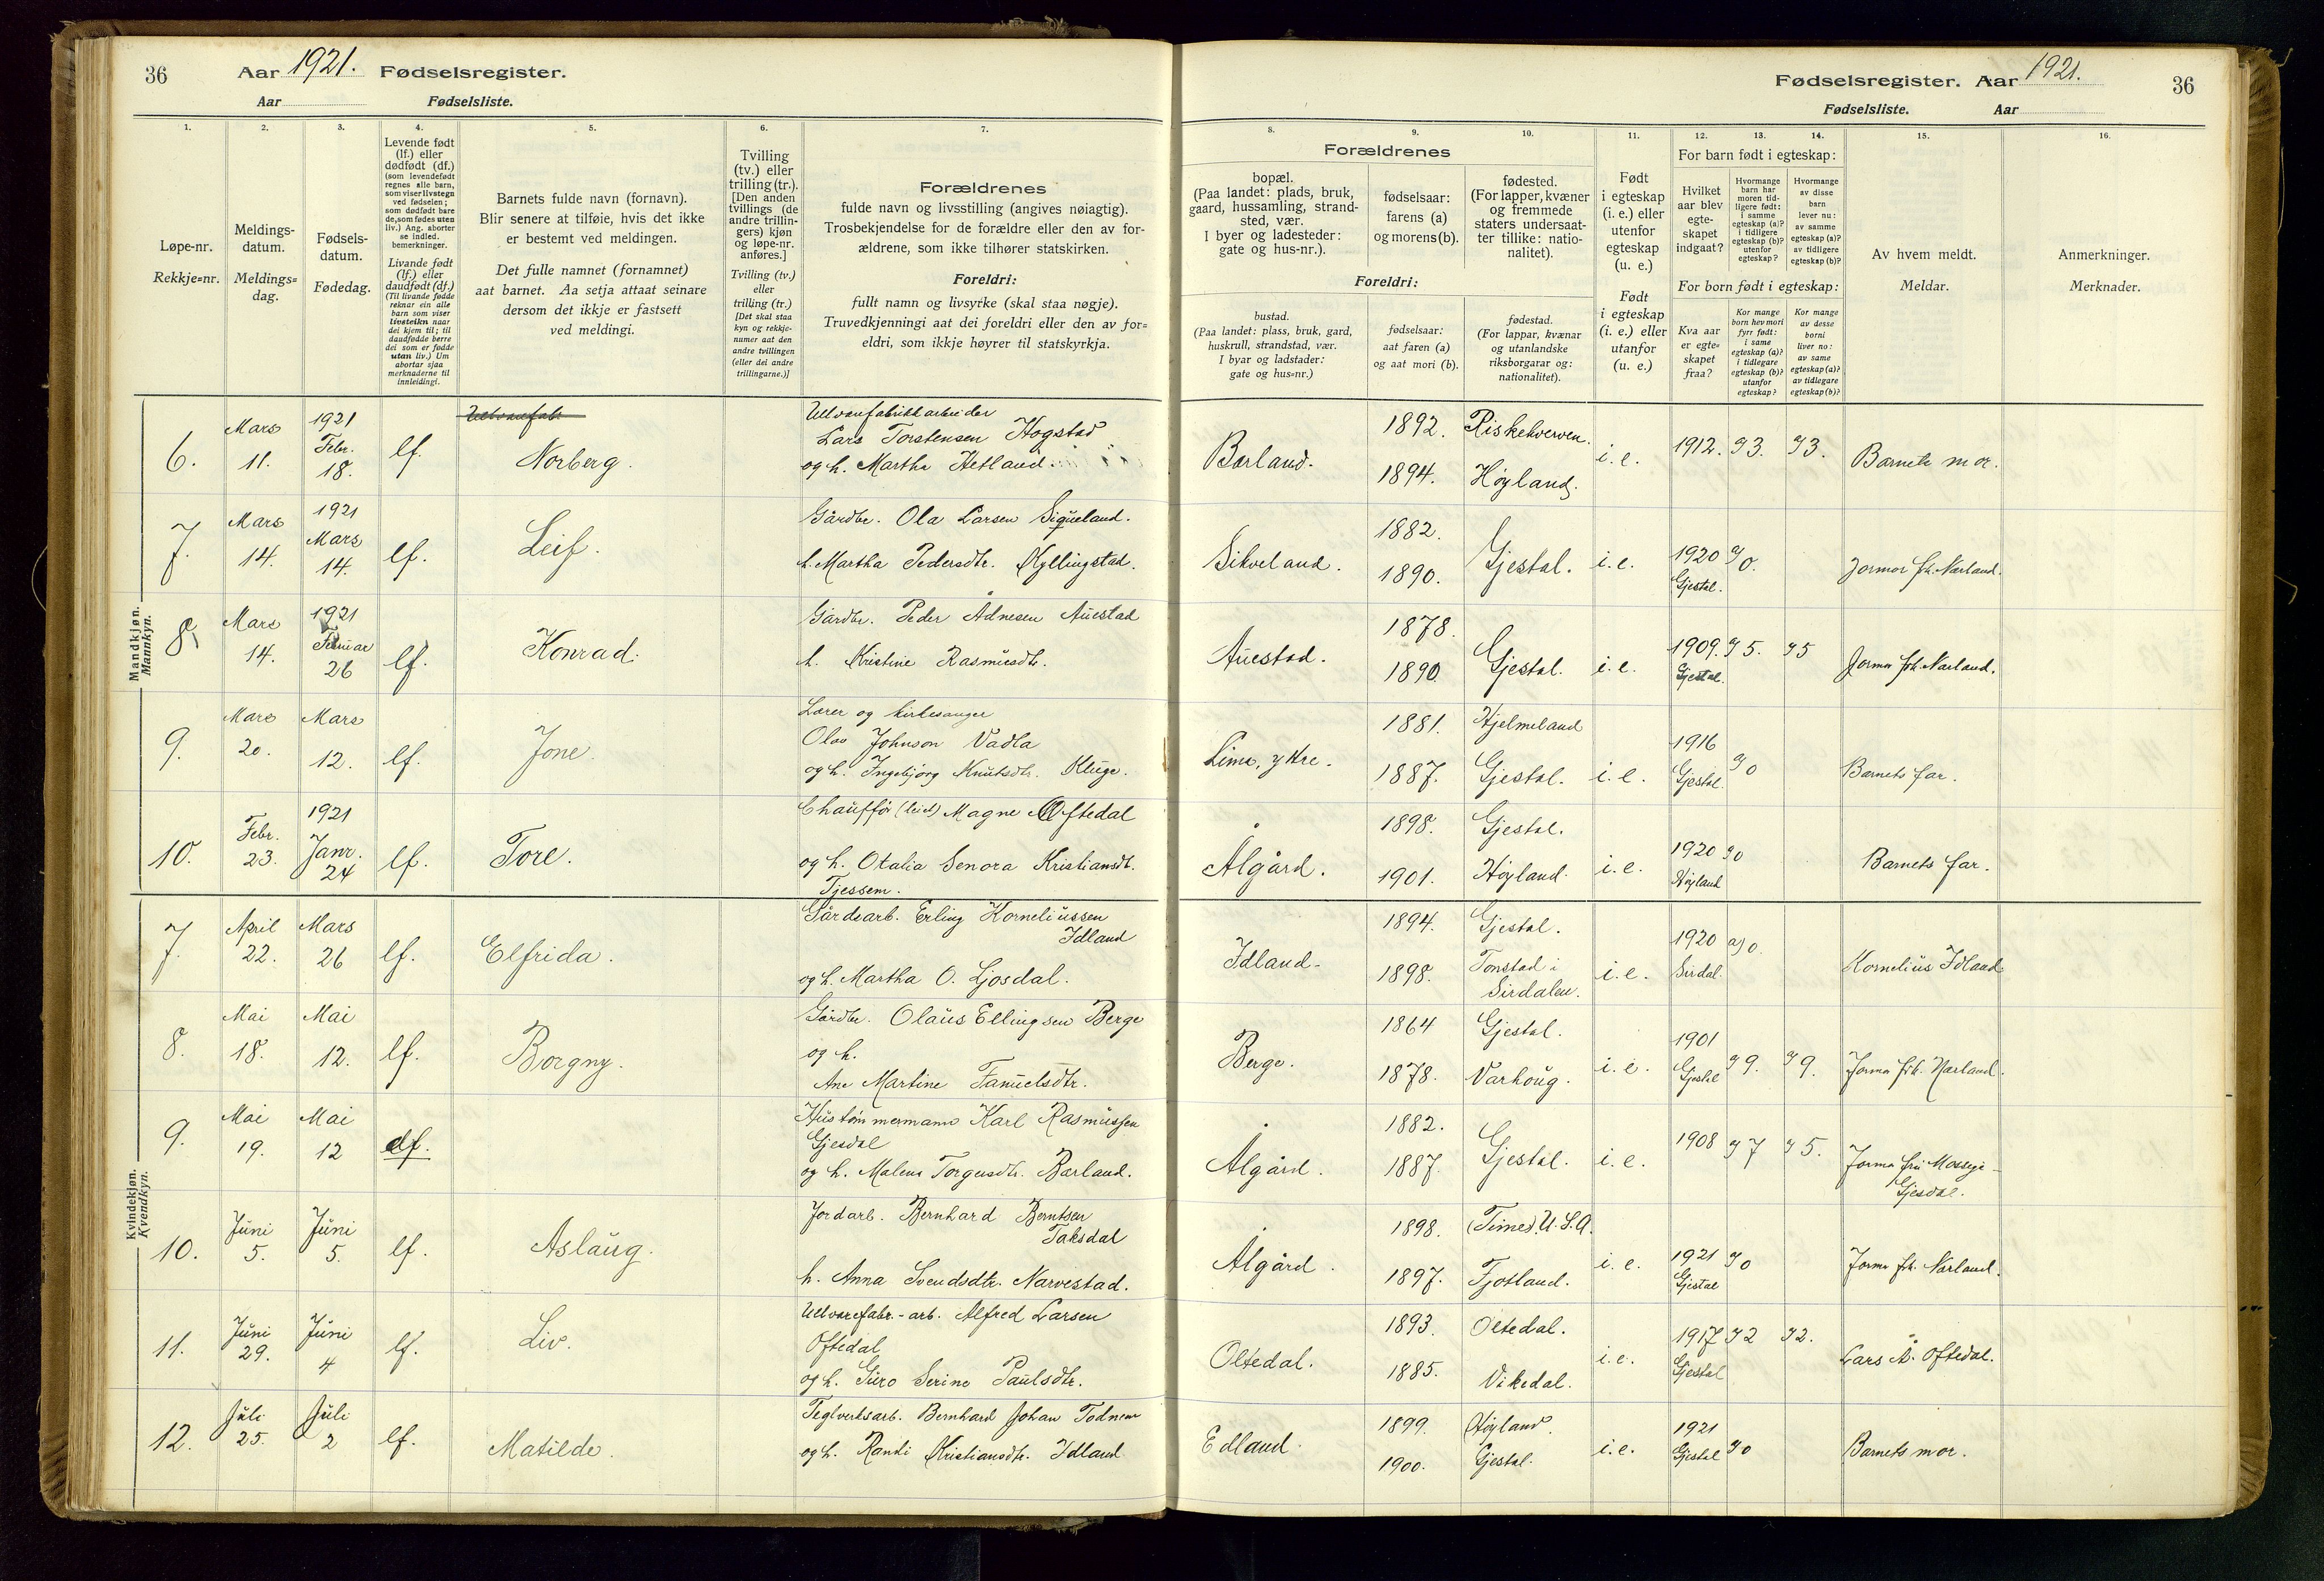 36
Aar 1921. Fødselsregister.
Aar Fødselsliste.
1.
Løpe-nr.
Rekkje=nr.
2.
Meldings-
datum.
Meldings=
dag.
3.
Fødsels-
datum.
Fødedag.
4.
Levende født
(lf.) eller
dødfødt (df.)
(som levendefødt
regnes alle barn,
som viser livstegn
ved fødselen;
som dødfødt bare
de, som fødes uten
liv.) Ang. aborter
se indled.
bemerkninger.
Livande født
(lf.) eller
daudfødt (df.)
(Til livande fødde
reknar ein alle
barn som viser
livsteikn naar
dei kjem til; til
daudfødde berre
dei som er fødde
utan liv.) Um
abortar sjaa
merknaderne til
innleidingi.
5.
Barnets fulde navn (fornavn).
Blir senere at tilføie, hvis det ikke
er bestemt ved meldingen.
Det fulle namnet (fornamnet)
aat barnet. Aa setja attaat seinare
dersom det ikkje er fastsett
ved meldingi.
6.
Tvilling
(tv.) eller
trilling (tr.).
[Den anden
tvillings (de
andre trillin-
gers) kjøn
og løpe-nr.
anføres.]
Tvilling (tv.)
eller
trilling (tr.)
[Det skal staa
kyn og rekkje-
numer aat den
andre tvillingen
(eller dei andre
trillingarne.)]
7.
Forældrenes
fulde navn og livsstilling (angives nøiagtig).
Trosbekjendelse for de forældre eller den av for-
ældrene, som ikke tilhører statskirken.
Foreldri:
fullt namn og livsyrke (skal staa nøgje).
Truvedkjenningi aat dei foreldri eller den av for=
eldri, som ikkje høyrer til statskyrkja.
Mandkjøn.
Mannkyn.
6. Mars 11. 1921 Febr. 18. lf. Norberg.
Uldvarefabrikkarbeider
Lars Torstensen Hogstad
og h. Martha Hetland.
7. Mars 14. 1921 Mars 14. lf. Leif.
Gårdbr. Ola Larsen Siqveland.
h. Martha Pedersdtr. Kyllingstad.
8. Mars 14. 1921 Februar 26 lf. Konrad.
Gårdbr. Peder Ådnesen Auestad
h. Kristine Rasmusdtr.
9. Mars 20. Mars 12. lf. Jone.
Lærer og kirkesanger
Olav Johnson Vadla
og h. Ingebjørg Knutsdtr. Kluge.
10. Febr. 23. 1921 Janr. 24 lf. Tore.
Chauffør (leiet) Magne Oftedal
og h. Otalia Senora Kristiansdt.
Tjessem.
Kvindekjøn.
Kvendkyn.
7. April 22. Mars 26 lf. Elfrida.
Gårdsarb. Erling Korneliussen
Idland
og h. Martha O. Ljosdal.
8. Mai 18. Mai 12. lf. Borgny.
Gårdbr. Olaus Ellingsen Berge
og h.
Ane Martine Famuelsdtr.
9. Mai 19. Mai 12 df.
Hustømmermann Karl Rasmussen
Gjesdal
og h. Malena Torgersdtr. Bærland.
10. Juni 5. Juni 5. lf. Aslaug.
Jordarb. Bernhard Berntsen
Taksdal
h. Anna Svendsdtr. Narvestad.
11. Juni 29. Juni 4 lf. Liv.
Uldvarefabr.-arb. Alfred Larsen
Oftedal
og h. Guro Serine Paulsdtr.
12. Juli 25. Juli 2 lf. Matilde.
Teglverksarb. Bernhard Johan Todnem
og h. Randi Kristiansdtr. Idland
Fødselsregister. Aar 1921. 36
Fødselsliste. Aar
Forældrenes
8.
bopæl.
(Paa landet: plads, bruk,
gaard, hussamling, strand-
sted, vær.
I byer og ladesteder:
gate og hus-nr.).
9.
fødselsaar:
farens (a)
og morens (b).
10.
fødested.
(For lapper, kvæner
og fremmede
staters undersaat-
ter tillike: natio-
nalitet).
Foreldri:
bustad.
(Paa landet: plass, bruk, gard,
huskrull, strandstad, vær.
I byar og ladstader:
gate og hus=nr.)
fødselsaar:
aat faren (a)
og aat mori (b).
fødestad.
(For lappar, kvænar
og utanlandske
riksborgarar og:
nationalitet).
11.
Født
i egteskap
(i. e.) eller
utenfor
egteskap
(u. e.)
Født
i egteskap
(i. e.) eller
utanfor
(u. e.)
12. 13. 14.
For barn født i egteskap:
Hvilket
aar blev
egte-
skapet
indgaat?
Hvormange
barn har
moren tid-
ligere født:
i samme
egteskap (a)?
i tidligere
egteskap (b)?
utenfor
egteskap?
Hvormange
av disse
barn
lever nu:
av samme
egteskap (a)?
av tidligere
egteskap (b)?
For born født i egteskap:
Kva aar
er egte=
skapet
fraa?
Kor mange
born hev mori
fyrr født:
i same
egteskap (a)?
i tidlegare
egteskap (b)?
utanfor
egteskap?
Kor mange
av desse
borni
liver no:
av same
egteskap (a)?
av tidlegare
egteskap (b)?
15.
Av hvem meldt.
Meldar.
16.
Anmerkninger.
Merknader.
Bærland. 1892. Riskekverven.
1894. Høyland. i. e. 1912. a) 3. a) 3. Barnets mor.
Sikveland. 1882.
1890. Gjestal. i. e. 1920 Gjestal. a) 0. Jormor frk. Nærland.
Auestad. 1878.
1890. Gjestal. i. e. 1909. Gjestal. a) 5. a) 5 Jormor frk. Nærland.
Lima, ytre. 1881. Hjelmeland
1887. Gjestal. i. e. 1916 Gjestal. a) 0 Barnets far.
Ålgård. 1898. Gjestal.
1901. Høyland. i. e. 1920 Høyland a) 0 Barnets far.
Idland. 1894. Gjestal.
1898. Tonstad i
Sirdalen. i. e. 1920 Sirdal. a) 0. Kornelius Idland
Berge. 1864 Gjestal.
1878. Varhoug. i. e. 1901 Gjestal a) 9. a) 9. Jormor frk. Nærland.
Ålgård. 1882.
1887. Gjestal. i. e. 1908 a) 7 a) 5. Jormor fru Mossige-
Gjesdal.
Ålgård. 1898. (Time) U.S.A.
1897. Fjotland. i. e. 1921 Gjestal a) 0 Jormor frk. Nærland.
Oltedal. 1893. Oltedal.
1885. Vikedal. i. e. 1917 Gjestal a) 2 a) 2. Lars A. Oftedal.
Edland. 1899. Høyland.
1900. Gjestal. i. e. 1921 Gjestal a) 0 Barnets mor.